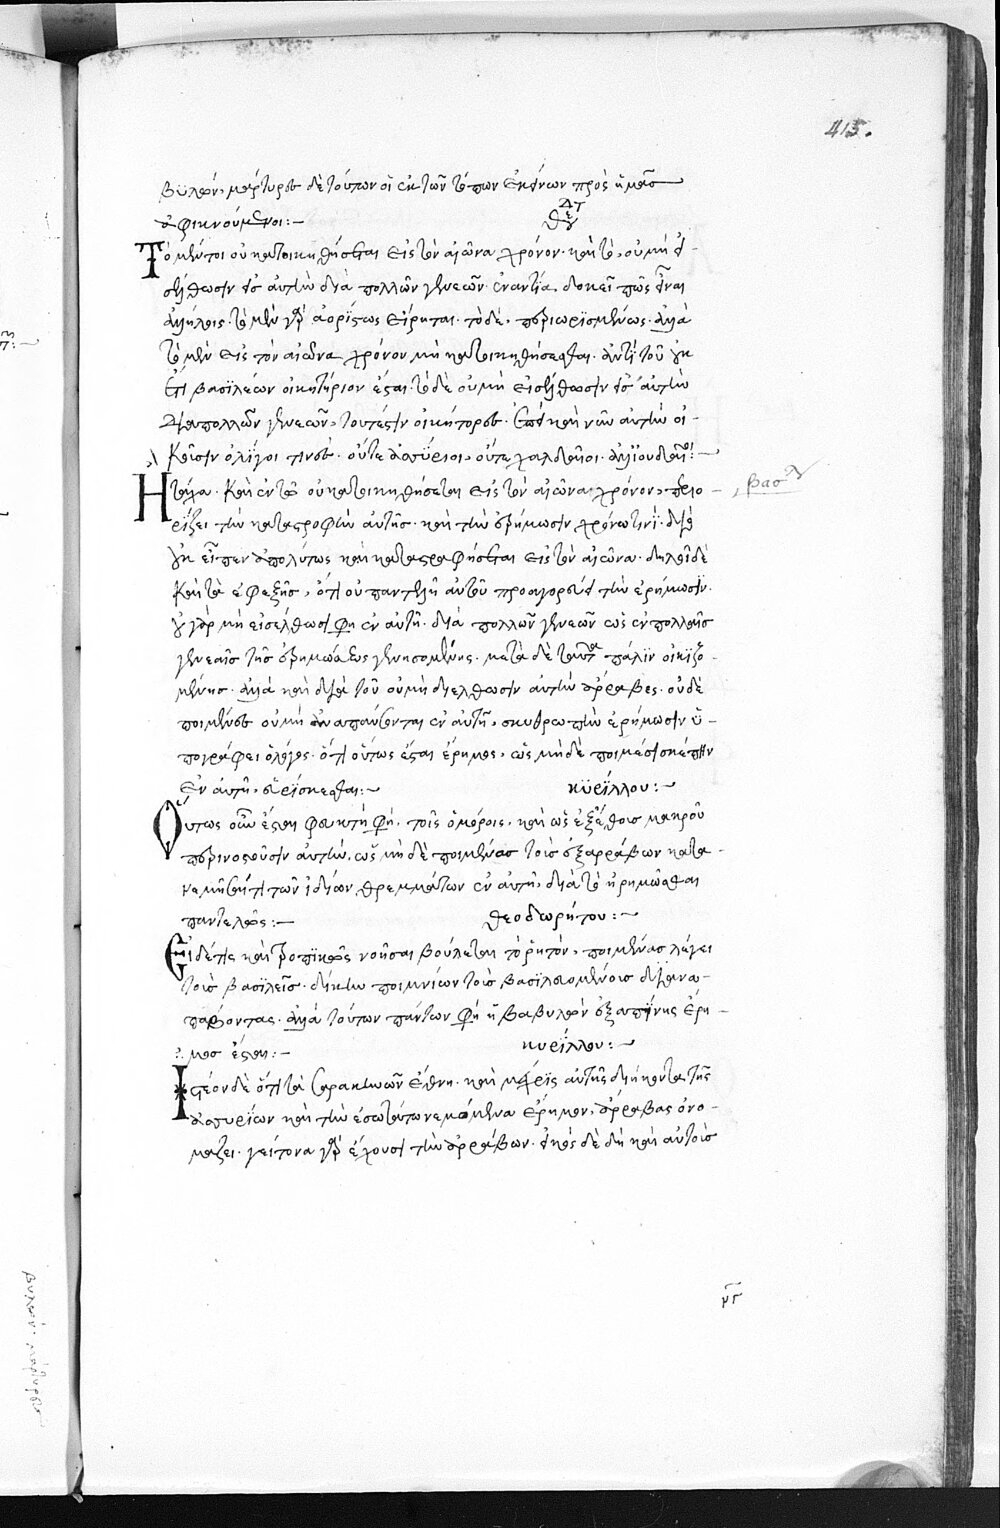 415.
βυλών, μάρτυρες δὲ τούτων οἱ ἐκ τῶν τόπων ἐκείνων πρὸς ἡμᾶς
ἀφικνούμενοι:~
Τὸ μέντοι οὐ κατοικηθήσεται εἰς τὸν αἰῶνα χρόνον. καὶ τὸ, οὐ μὴ εἰ
σέλθωσιν εἰς αὐτὴν διὰ πολλῶν γενεῶν. ἐναντία δοκεῖ πῶς εἶναι
ἀλλήλοις. τὸ μὲν γὰρ ἀορίστως εἴρηται. τὸ δὲ, περιωρισμένως. ἀλλὰ
τὸ μὲν εἰς τὸν αἰῶνα χρόνον μὴ κατοικηθήσεσθαι. ἀντὶ τοῦ οὐκ
ἔτι βασιλέων οἰκητήριον ἔσται. τὸ δὲ οὐ μὴ εἰσέλθωσιν εἰς αὐτὴν
διὰ πολλῶν γενεῶν, τουτέστιν οἰκήτορες. ἐπεὶ καὶ νῦν αὐτὴν οἰ-
κοῦσιν ὀλίγοι τινές. οὔτε ἀσσύριοι, οὔτε χαλδαῖοι. ἀλλ' ἰουδαῖοι:~
Η τάχα. καὶ ἐν τῷ οὐ κατοικηθήσεται εἰς τὸν αἰῶνα χρόνον, περιο-
βασιλ
ρίζει τὴν καταστροφὴν αὐτῆς. καὶ τὴν ἐρήμωσιν χρόνῳ τινί. διὸ
οὐκ εἶπεν ἀπολύτως καὶ καταστραφήσεται εἰς τὸν αἰῶνα. δηλοῖ δὲ
καὶ τὰ ἐφεξῆς, ὅτι οὐ παντελῆ αὐτοῦ προαγορεύει τὴν ἐρήμωσιν.
οὐ γὰρ μὴ εἰσέλθωσι φησιν ἐν αὐτῇ. διὰ πολλῶν γενεῶν ὡς ἐν πολλαῖς
γενεαῖς τῆς ἐρημώσεως γενησομένης. μετὰ δὲ ταῦτα πάλιν οἰκιζο-
μένης. ἀλλὰ καὶ διὰ τοῦ οὐ μὴ διέλθωσιν αὐτὴν ἄραβες. οὐδὲ
ποιμένες οὐ μὴ ἀναπαύσονται ἐν αὐτῇ, σκυθρωπὴν ἐρήμωσιν ὑ-
πογράφει ὁ λόγος. ὅτι οὕτως ἔσται ἔρημος, ὡς μὴ δὲ ποιμέσι σκέπην
ἐν αὐτῇ εὑρίσκεσθαι:~ κυρίλλου:~
Οὕτως οὖν ἔσται φευκτὴ φησὶ. τοῖς ὁμόροις. καὶ ὡς ἐξ ἔθους μακροῦ
περινοστοῦσιν αὐτὴν, ὡς μὴ δὲ ποιμένας τοὺς ἐξ ἀρράβων κατα-
νέμησιν τι τῶν ἰδίων θρεμμάτων ἐν αὐτῇ, διὰ τὸ ἠρημῶσθαι
παντελῶς:~ θεοδωρήτου:~
Εἰ δέ τις καὶ τροπικῶς νοῆσαι βούλεται τὸ ῥητὸν, ποιμένας λέγει
τοὺς βασιλεῖς. δίκην ποιμνίων τοὺς βασιλευομένους διιθύνω-
παρόντας. ἀλλὰ τούτων πάντων φησὶ ἡ βαβυλὼν ἐξαπίνης ἔρη-
μος ἔσται:~ κυρίλλου:~
Ἰστέον δὲ ὅτι τὰ σαρακηνῶν ἔθνη. καὶ μέχρις αὐτῆς διήκοντα τῆς
ἀσσυρίων καὶ τὴν ἐσωτάτω νεμόμενα ἔρημον, ἄραβας ὀνο-
μάζει. γείτονα γὰρ ἔχουσι τὴν ἀρράβων. εἰκὸς δὲ δὴ καὶ αὐτοὺς